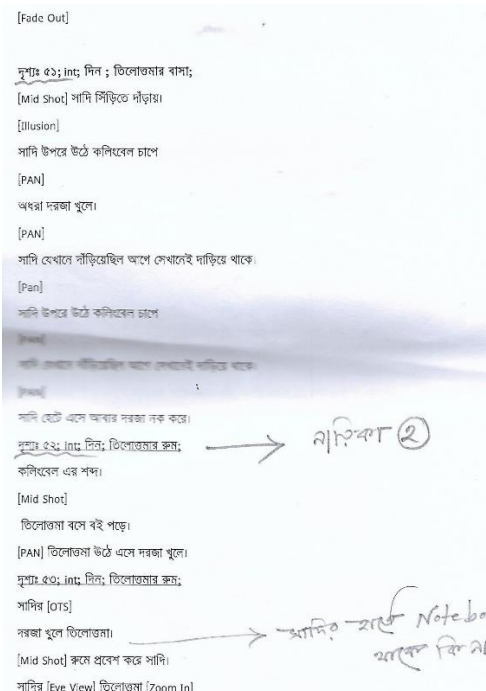 [Fade Out]
দৃশ্যঃ ৫১; int; দিন ; তিলোত্তমার বাসা;
[Mid Shot] সাদি সিঁড়িতে দাঁড়ায়।
[Illusion]
সাদি উপরে উঠে কলিংবেল চাপে
[PAN]
অধরা দরজা খুলে।
[PAN]
সাদি যেখানে দাঁড়িয়েছিল আগে সেখানেই দাড়িয়ে থাকে।
[Pan]
সাদি উপরে উঠে কলিংবেল চাপে
[PAN]
সাদি যেখানে দাঁড়িয়েছিল আগে সেখানেই দাড়িয়ে থাকে।
[PAN]
সাদি হেটে এসে আবার দরজা নক করে।
দৃশ্যঃ ৫২; int; দিন; তিলোত্তমার রুম; নায়িকা ২
কলিংবেল এর শব্দ।
[Mid Shot]
তিলোত্তমা বসে বই পড়ে।
[PAN] তিলোত্তমা উঠে এসে দরজা খুলে।
দৃশ্যঃ ৫৩; int; দিন; তিলোত্তমার রুম;
সাদির [OTS]
দরজা খুলে তিলোত্তমা। সাদির হাতে Notebo
থাকে কি না
[Mid Shot] রুমে প্রবেশ করে সাদি।
সাদির [Eye View] তিলোত্তমা [Zoom In]